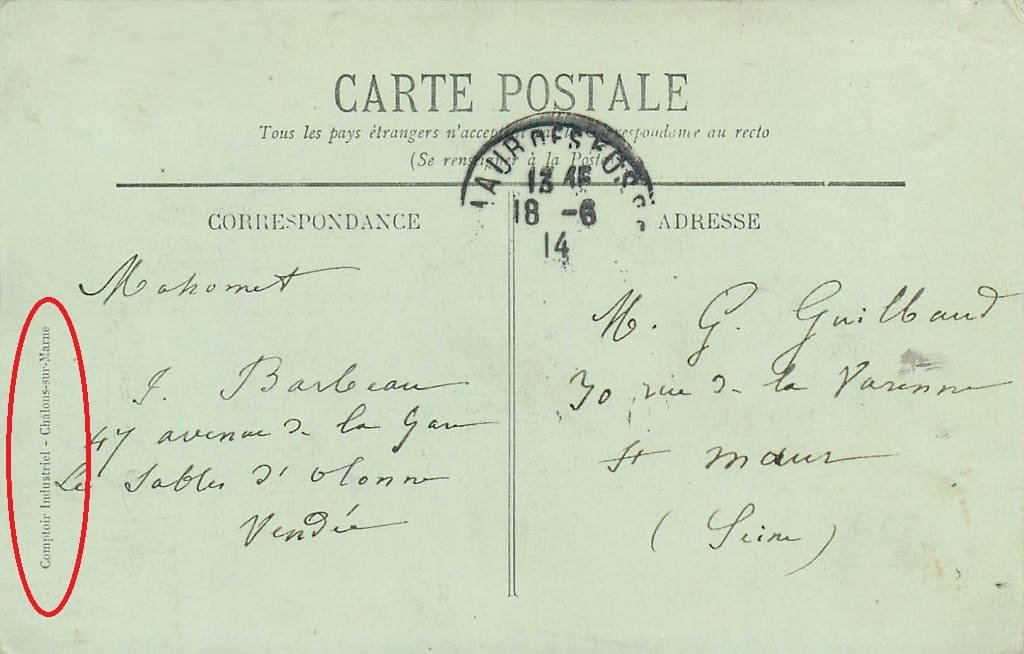 CARTE POSTALE
Tous les pays étrangers n'acceptent pas la Correspondance au recto
(Se renseigner à la Poste)
MAUR DES FOSS
13 45
18 -6
14
CORRESPONDANCE
ADRESSE
Mahomet
J. Barbeau
47 avenue de la Gare
Les Sables d'Olonne
Vendée
M. G. Guilbaud
30 rue de la Varenne
St Maur
(Seine)
Comptoir Industriel - Châlons-sur-Marne